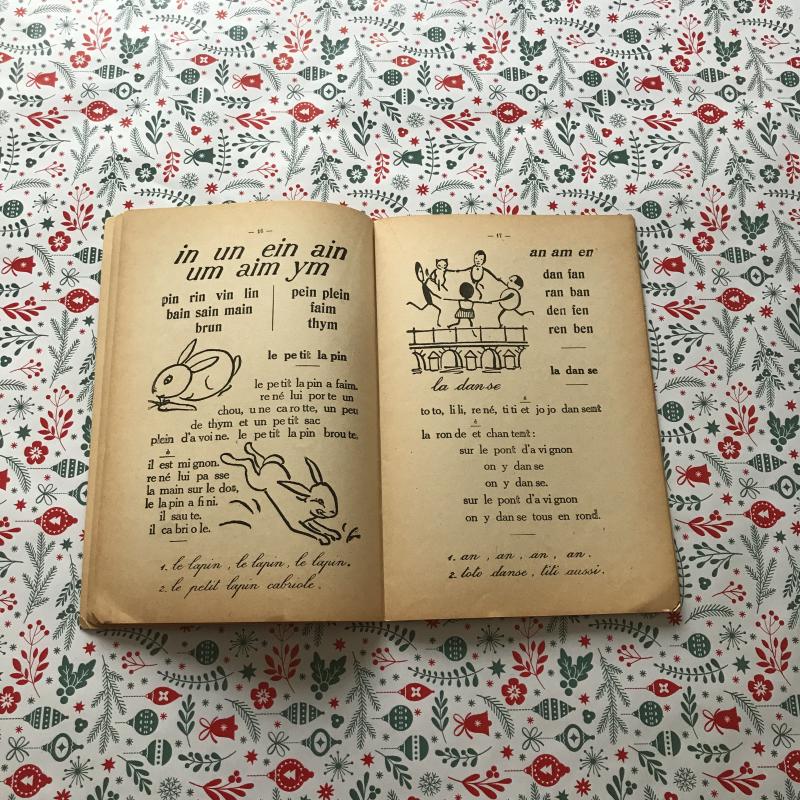 — 16 —
in un ein ain
um aim ym
pin rin vin lin
bain sain main
brun
pein plein
faim
thym
le pe tit la pin
le pe tit la pin a faim.
re né lui por te un
chou, u ne ca ro tte, un peu
de thym et un pe tit sac
plein d'a voi ne. le pe tit la pin brou te.
è
il est mi gnon.
re né lui pa sse
la main sur le dos,
le la pin a fi ni.
il sau te.
il ca bri o le.
1. le lapin, le lapin, le lapin.
2. le petit lapin cabriole.
— 17 —
an am en
dan fan
ran ban
den fen
ren ben
la danse
la dan se
é
to to, li li, re né, ti ti et jo jo dan sent
é
la ron de et chan tent :
sur le pont d'a vi gnon
on y dan se
on y dan se.
sur le pont d'a vi gnon
on y dan se tous en rond.
1. an, an, an, an.
2. toto danse, titi aussi.